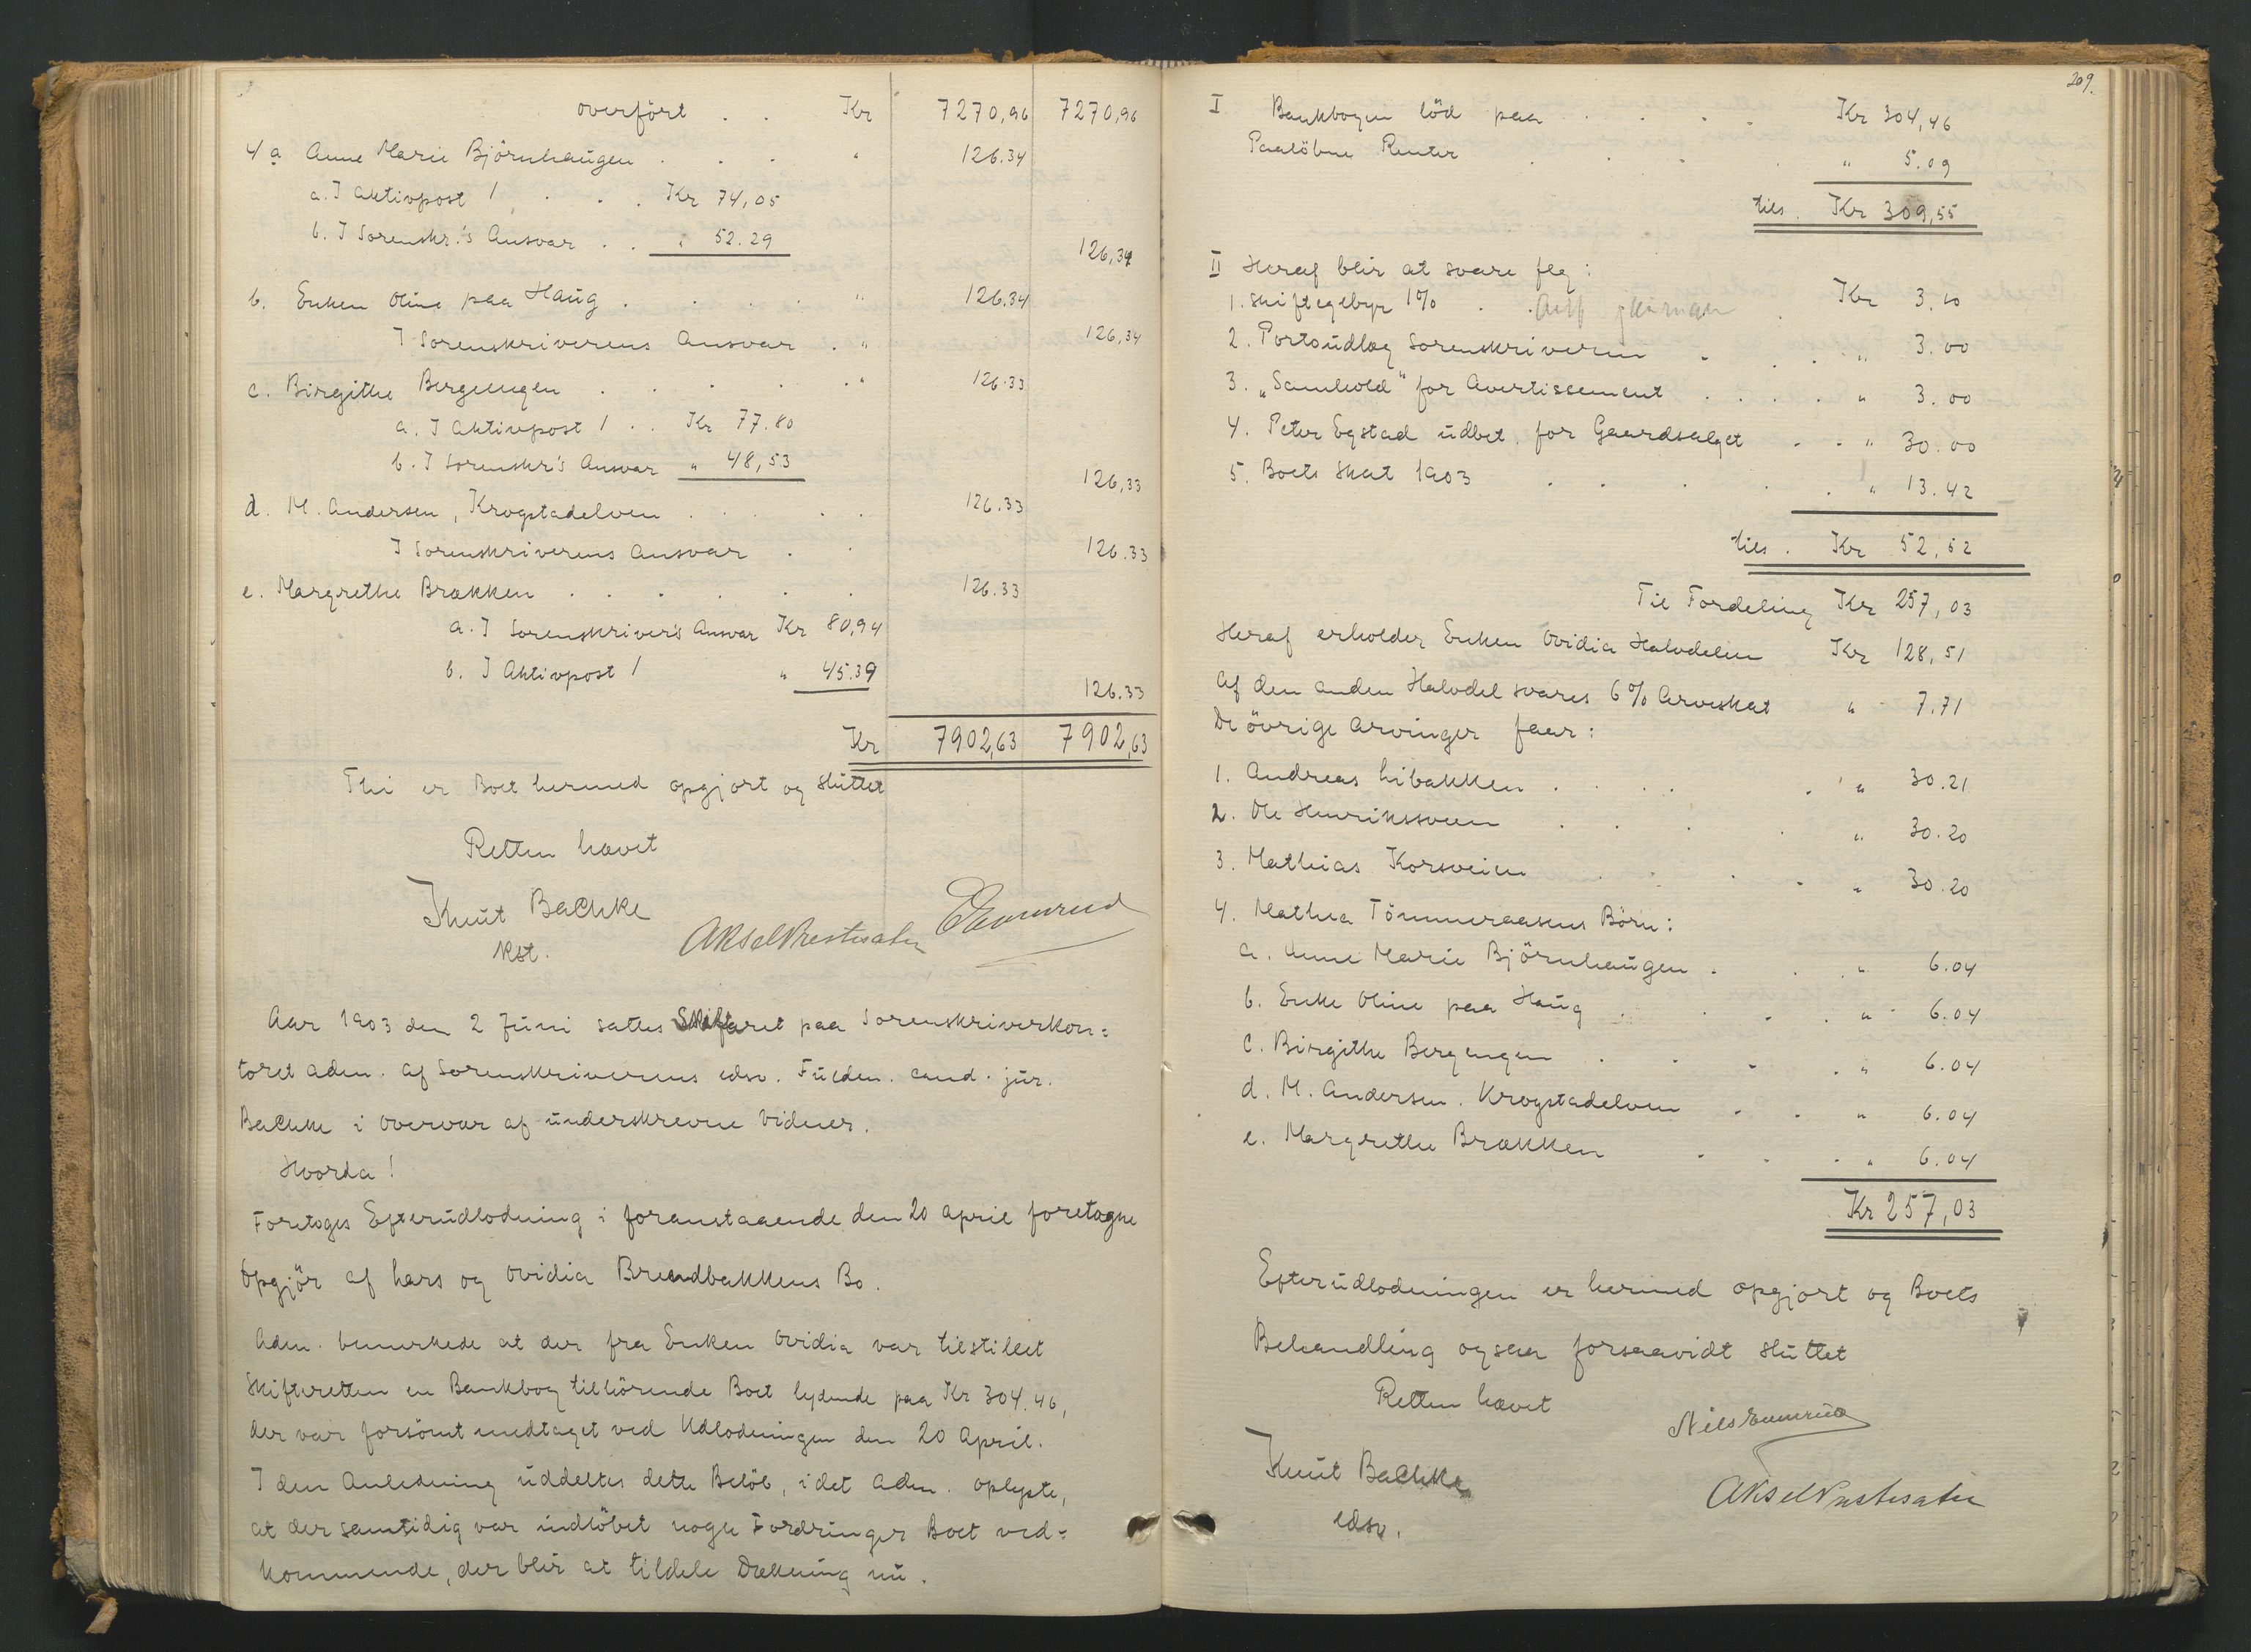 overfört . . Kr 7270,96 7270,96
4 a Anne Marie Björnhaugen . . . " 126.34
a. I Aktivpost 1 . . . Kr 74,05
b. I Sorenskr.'s Ansvar . . " 52.29 126,34
b. Enken Oline paa Haug . . . . " 126.34
I Sorenskriverens Ansvar . " 126,34
c. Birgithe Bergengen . . . . . " 126.33
a. I Aktivpost 1 . . Kr 77.80
b. I Sorenskr's Ansvar " 48,53 126,33
d. M. Andersen, Krogstadelven . . . . 126.33
I Sorenskriverens Ansvar . . 126.33
e. Margrethe Brækken . . . . . . 126.33
a. I Sorenskriver's Ansvar Kr 80,94
b. I Aktivpost 1 " 45.39 126.33
Kr 7902,63 7902,63
Thi er Boet hermed opgjort og sluttet
Retten hævet
Knut Bachke
kst.
Aksel Prestesater
Aar 1903 den 2 Juni sattes Skifteret paa Sorenskriverkon=
toret adm. af Sorenskriverens edsv. Fuldm. cand. jur.
Bachke i Overvær af underskrevne Vidner.
Hvorda!
Foretoges Efterudlodning i foranstaaende den 20 April foretagne
Opgjör af Lars og Ovidia Brendbakkens Bo.
Adm. bemerkede at der fra Enken Ovidia var tilstillet
Skifteretten en Bankbog tilhörende Boet lydende paa Kr 304.46,
der var forsömt medtaget ved Udlodningen den 20 April.
I den Anledning uddeltes dette Belöb, idet Adm. oplyste,
at der samtidig var indlöbet nogle Fordringer Boet ved=
kommende, der blir at tildele Dækning nu.
209.
I Bankbogen löd paa . . . . Kr 304,46
Paalöbne Renter . . . . " 5.09
tils. Kr 309,55
II Heraf blir at svare flg:
1. Skiftegebyr 1% . . Kr 3.10
2. Portoudlæg Sorenskriveren . . " 3.00
3. "Samhold" for Avertissement . . . . " 3.00
4. Peter Egstad udbet. for Gaardsalget . . " 30.00
5. Boets Skat 1903 . . . . . " 13.42
tils. Kr 52,52
Til Fordeling Kr 257,03
Heraf erholder Enken Ovidia Halvdelen Kr 128,51
Af den anden Halvdel svares 6% Arveskat " 7.71
De övrige Arvinger faar:
1. Andreas Libakken . . . . . " 30.21
2. Ole Henrikssveen . . . . " 30.20
3. Mathias Korsveien . . . . " 30.20
4. Mathea Tömmeraasens Börn:
a. Anne Marie Björnhaugen . . . " 6.04
b. Enke Oline paa Haug . . . . " 6.04
c. Birgithe Bergengen . . . . " 6.04
d. M. Andersen. Krogstadelven . . " 6.04
e. Margrethe Brækken . . . " 6.04
Kr 257,03
Efterudlodningen er hermed opgjort og Boets
Behandling ogsaa forsaavidt sluttet
Retten hævet
Knut Bachke
edsv.
Nils
Aksel Prestesater